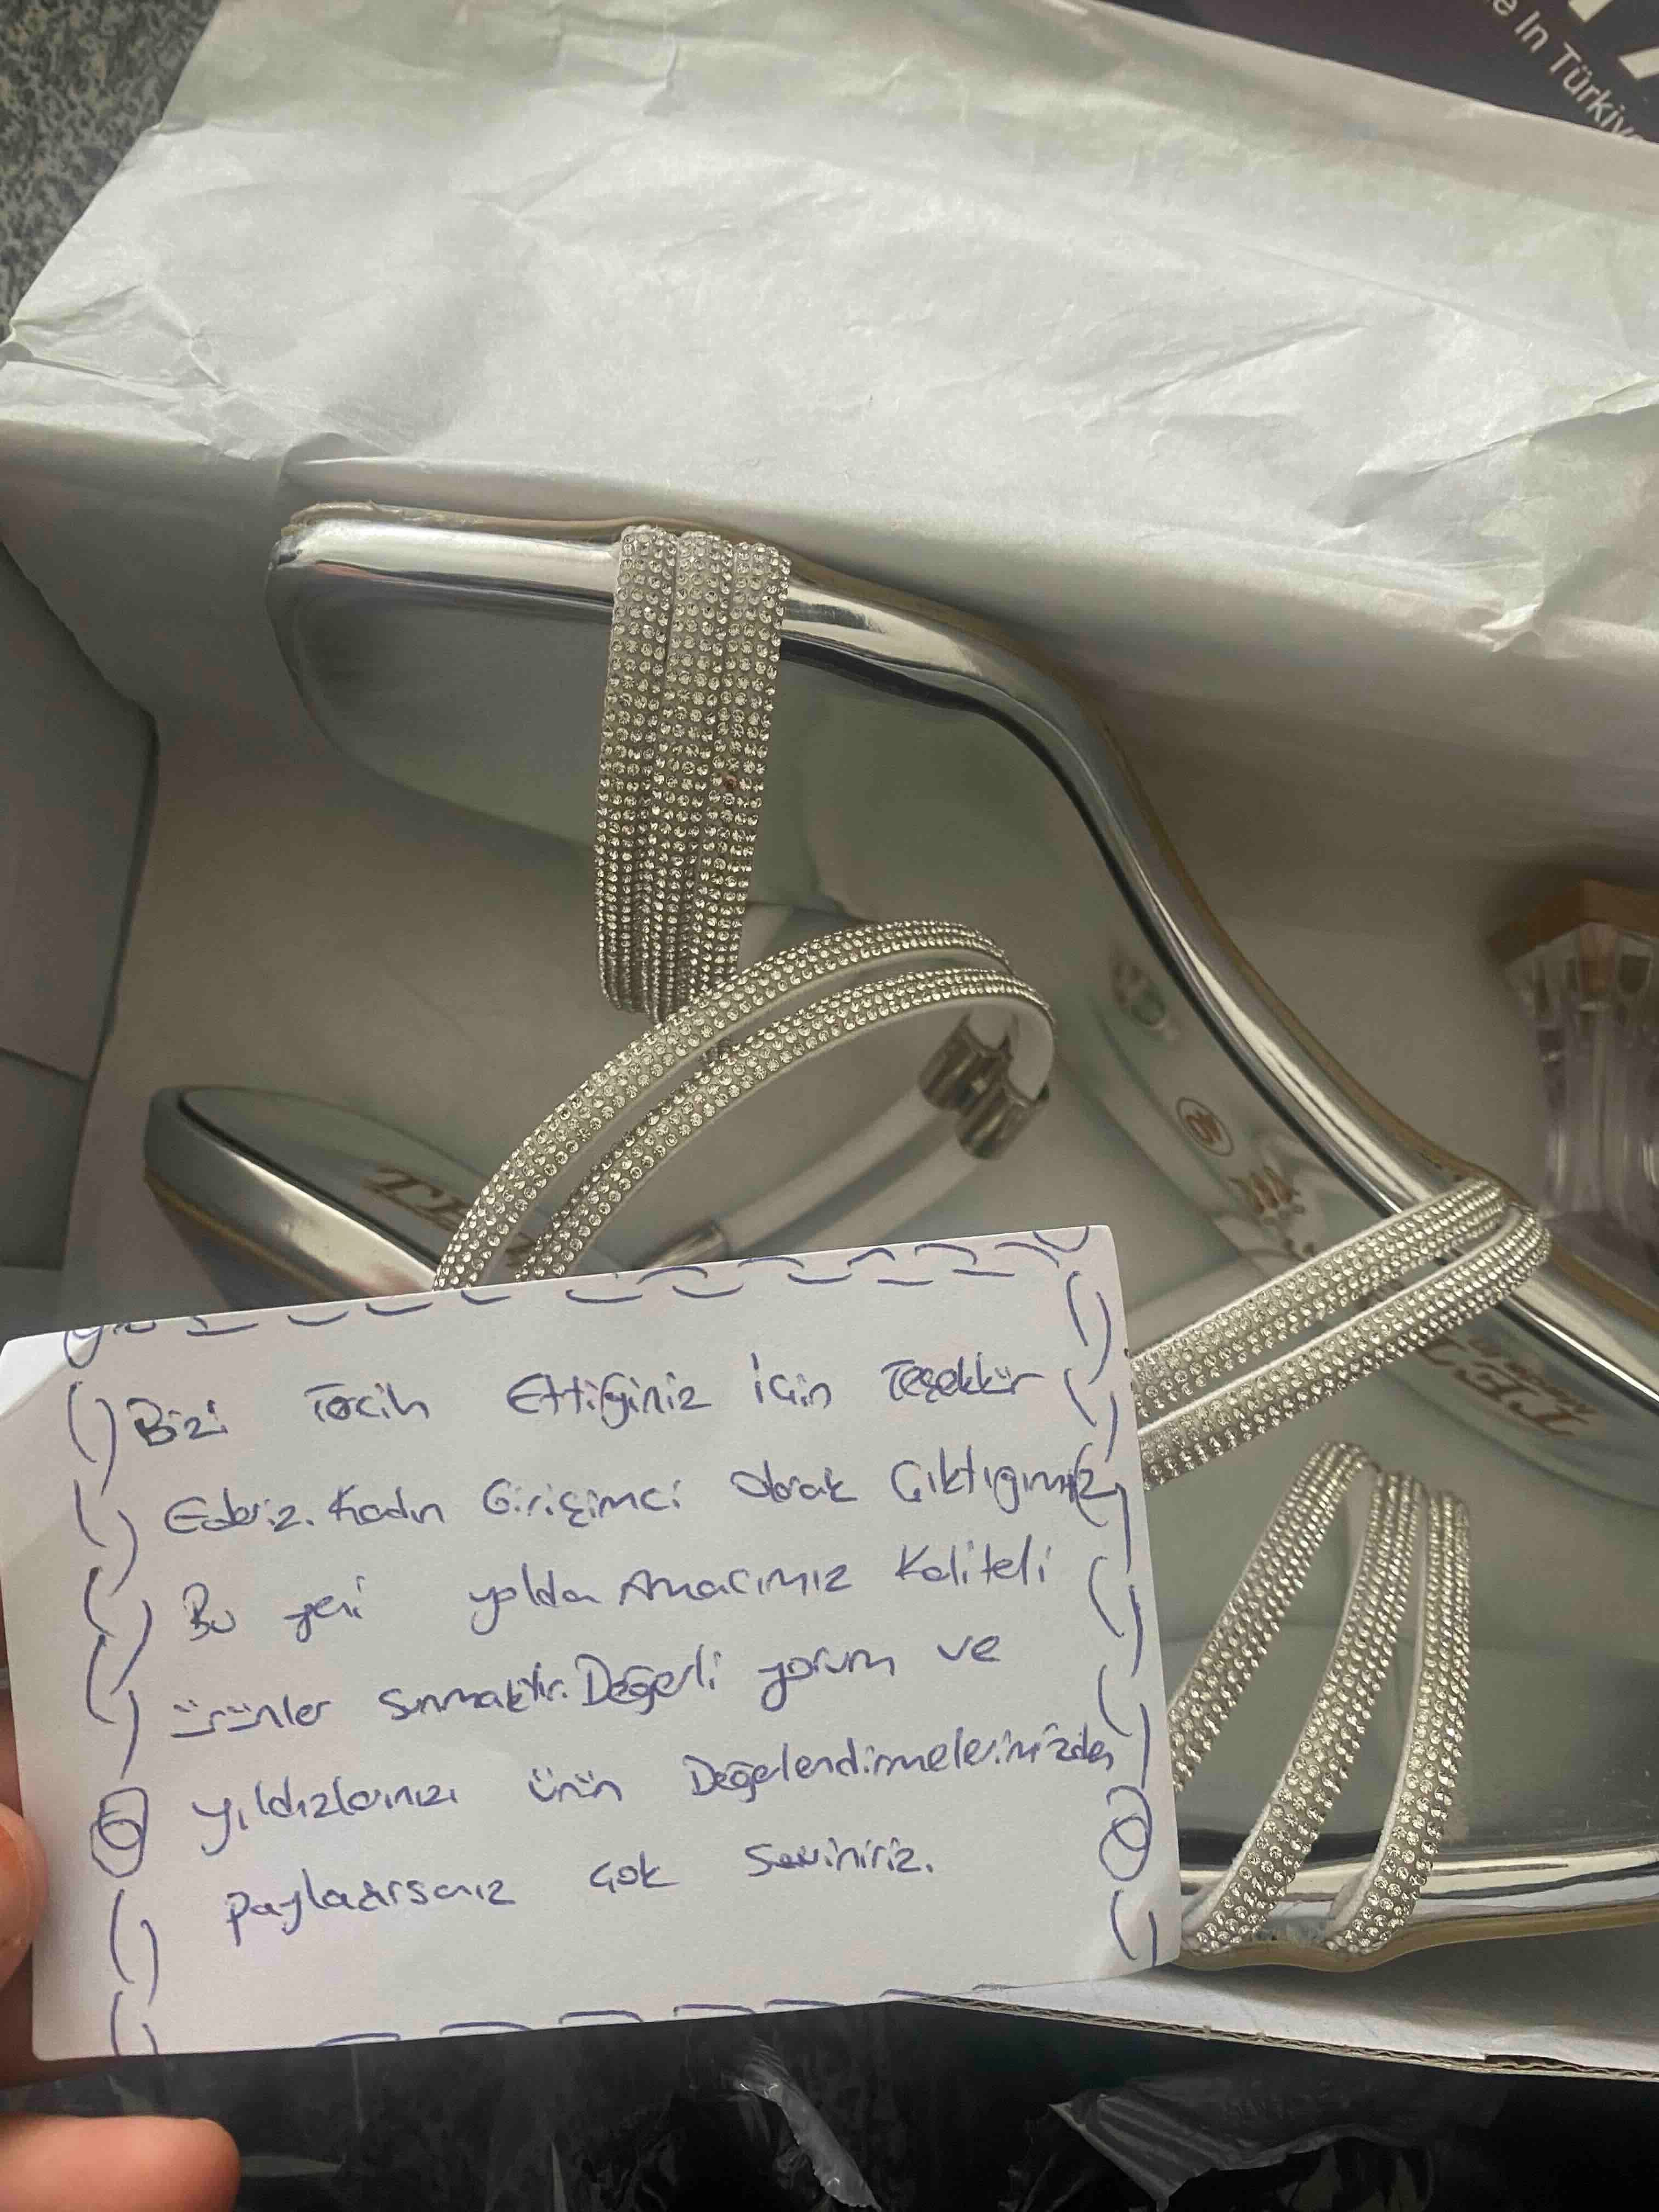 e In Türkiye
40
Bizi Tercih Ettiğiniz İçin Teşekkür
Ederiz. Kadın Girişimci olarak Çıktığımız
Bu yeni yolda Amacımız Kaliteli
ürünler sunmaktır. Değerli yorum ve
yıldızlarınızı ürün Değerlendirmelerinizde
paylaşırsanız çok seviniriz.